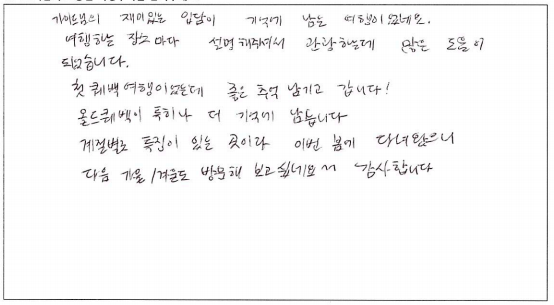 가이드님의 재미있는 입담이 기억에 남는 여행이었네요.
여행하는 장소마다 설명해주셔서 관광하는데 많은 도움이
되었습니다.
첫 퀘백여행이었는데 좋은 추억 남기고 갑니다!
올드퀘벡이 특히나 더 기억에 남습니다
계절별로 특징이 있는 곳이라 이번 봄에 다녀왔으니
다음 가을/겨울도 방문해 보고싶네요~ 감사합니다